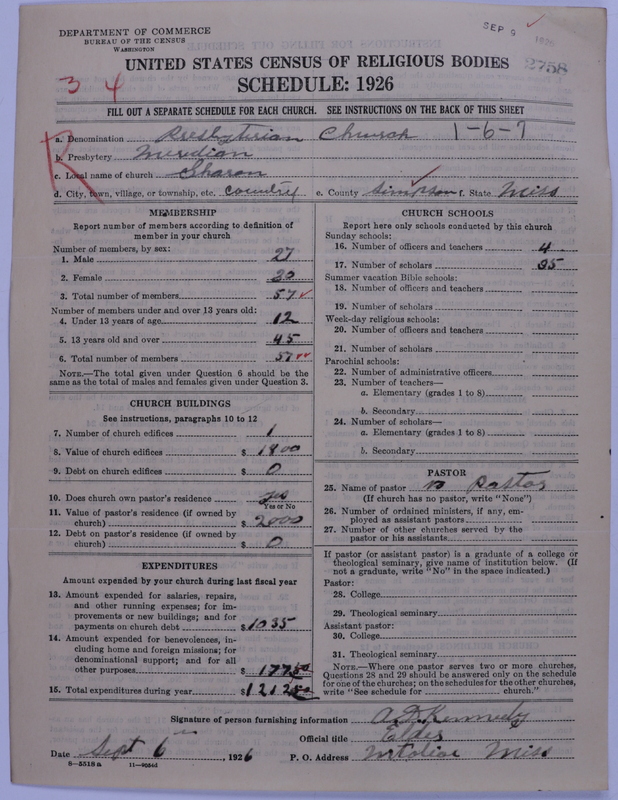 DEPARTMENT OF COMMERCE
BUREAU OF THE CENSUS
WASHINGTON
SEP 9
2758
UNITED STATES CENSUS OF RELIGIOUS BODIES
SCHEDULE: 1926
3 4
FILL OUT A SEPARATE SCHEDULE FOR EACH CHURCH. SEE INSTRUCTIONS ON THE BACK OF THIS SHEET
R
a. Denomination Presbyterian Church 1-6-7
b. Presbytery Meridian
c. Local name of church Sharon
d. City, town, village, or township, etc. country e. County Simpson f. State Miss
MEMBERSHIP
Report number of members according to definition of
member in your church
Number of members, by sex:
1. Male 27
2. Female 30
3. Total number of members 57
Number of members under and over 13 years old:
4. Under 13 years of age 12
5. 13 years old and over 45
6. Total number of members 57
NOTE.—The total given under Question 6 should be
same as the total of males and females given under Question 3.
CHURCH BUILDINGS
See instructions, paragraphs 10 to 12
7. Number of church edifices 1
8. Value of church edifices $ 1800
9. Debt on church edifices $ 0
10. Does church own pastor's residence yes
Yes or No
11. Value of pastor's residence (if owned by
church) $ 2000
12. Debt on pastor's residence (if owned by
church) $ 0
EXPENDITURES
Amount expended by your church during last fiscal year
13. Amount expended for salaries, repairs,
and other running expenses; for im-
provements or new buildings; and for
payments on church debt $ 1035
14. Amount expended for benevolences, in-
cluding home and foreign missions; for
denominational support; and for all
other purposes $ 177.50
15. Total expenditures during year $ 1212.50
CHURCH SCHOOLS
Report here only schools conducted by this church
Sunday schools:
16. Number of officers and teachers 4
17. Number of scholars 35
Summer vacation Bible schools:
18. Number of officers and teachers
19. Number of scholars
Week-day religious schools:
20. Number of officers and teachers
21. Number of scholars
Parochial schools:
22. Number of administrative officers
23. Number of teachers—
a. Elementary (grades 1 to 8)
b. Secondary
24. Number of scholars—
a. Elementary (grades 1 to 8)
b. Secondary
PASTOR
25. Name of pastor no pastor
(If church has no pastor, write "None")
26. Number of ordained ministers, if any, em-
ployed as assistant pastors
27. Number of other churches served by the
pastor or his assistants
If pastor (or assistant pastor) is a graduate of a college or
theological seminary, give name of institution below. (If
not a graduate, write "No" in the space indicated.)
Pastor:
28. College
29. Theological seminary
Assistant pastor:
30. College
31. Theological seminary
NOTE.—Where one pastor serves two or more churches,
Questions 28 and 29 should be answered only on the schedule
for one of the churches; on the schedules for the other churches,
write "See schedule for church."
Signature of person furnishing information Kennedy
Official title Elder
Date Sept 6 , 1926 P. O. Address Miss
8—5518 a